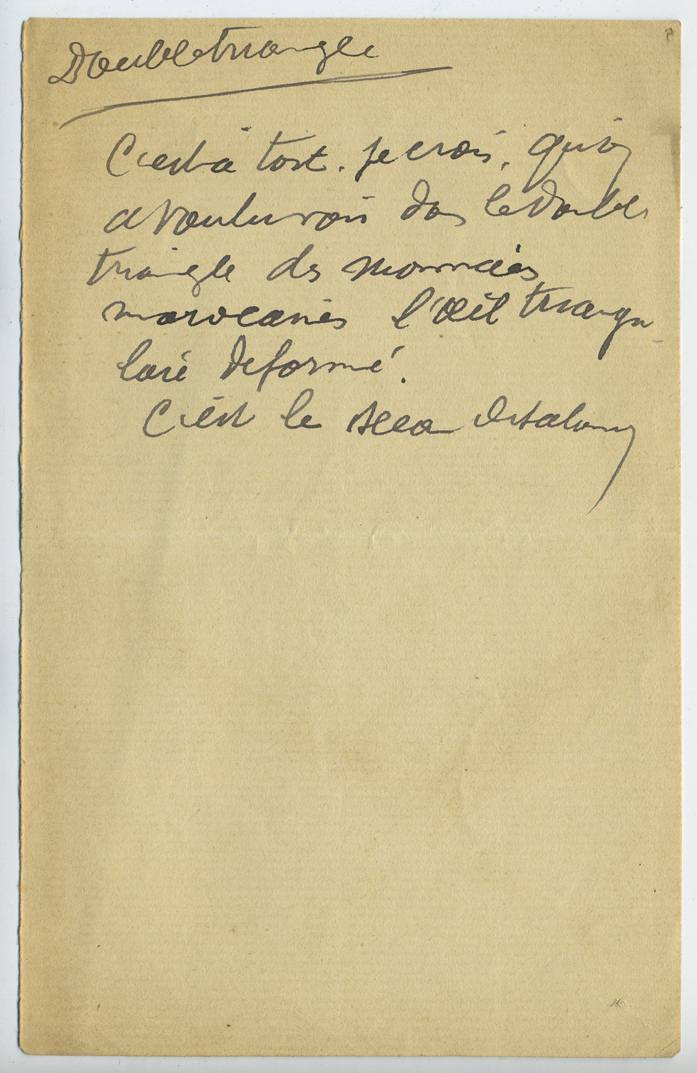 Double triangle
C'est à tort, je crois, qu'on
a voulu voir dans le double
triangle des monnaies
marocaines l'œil triangu-
laire déformé.
C'est le sceau de Salomon